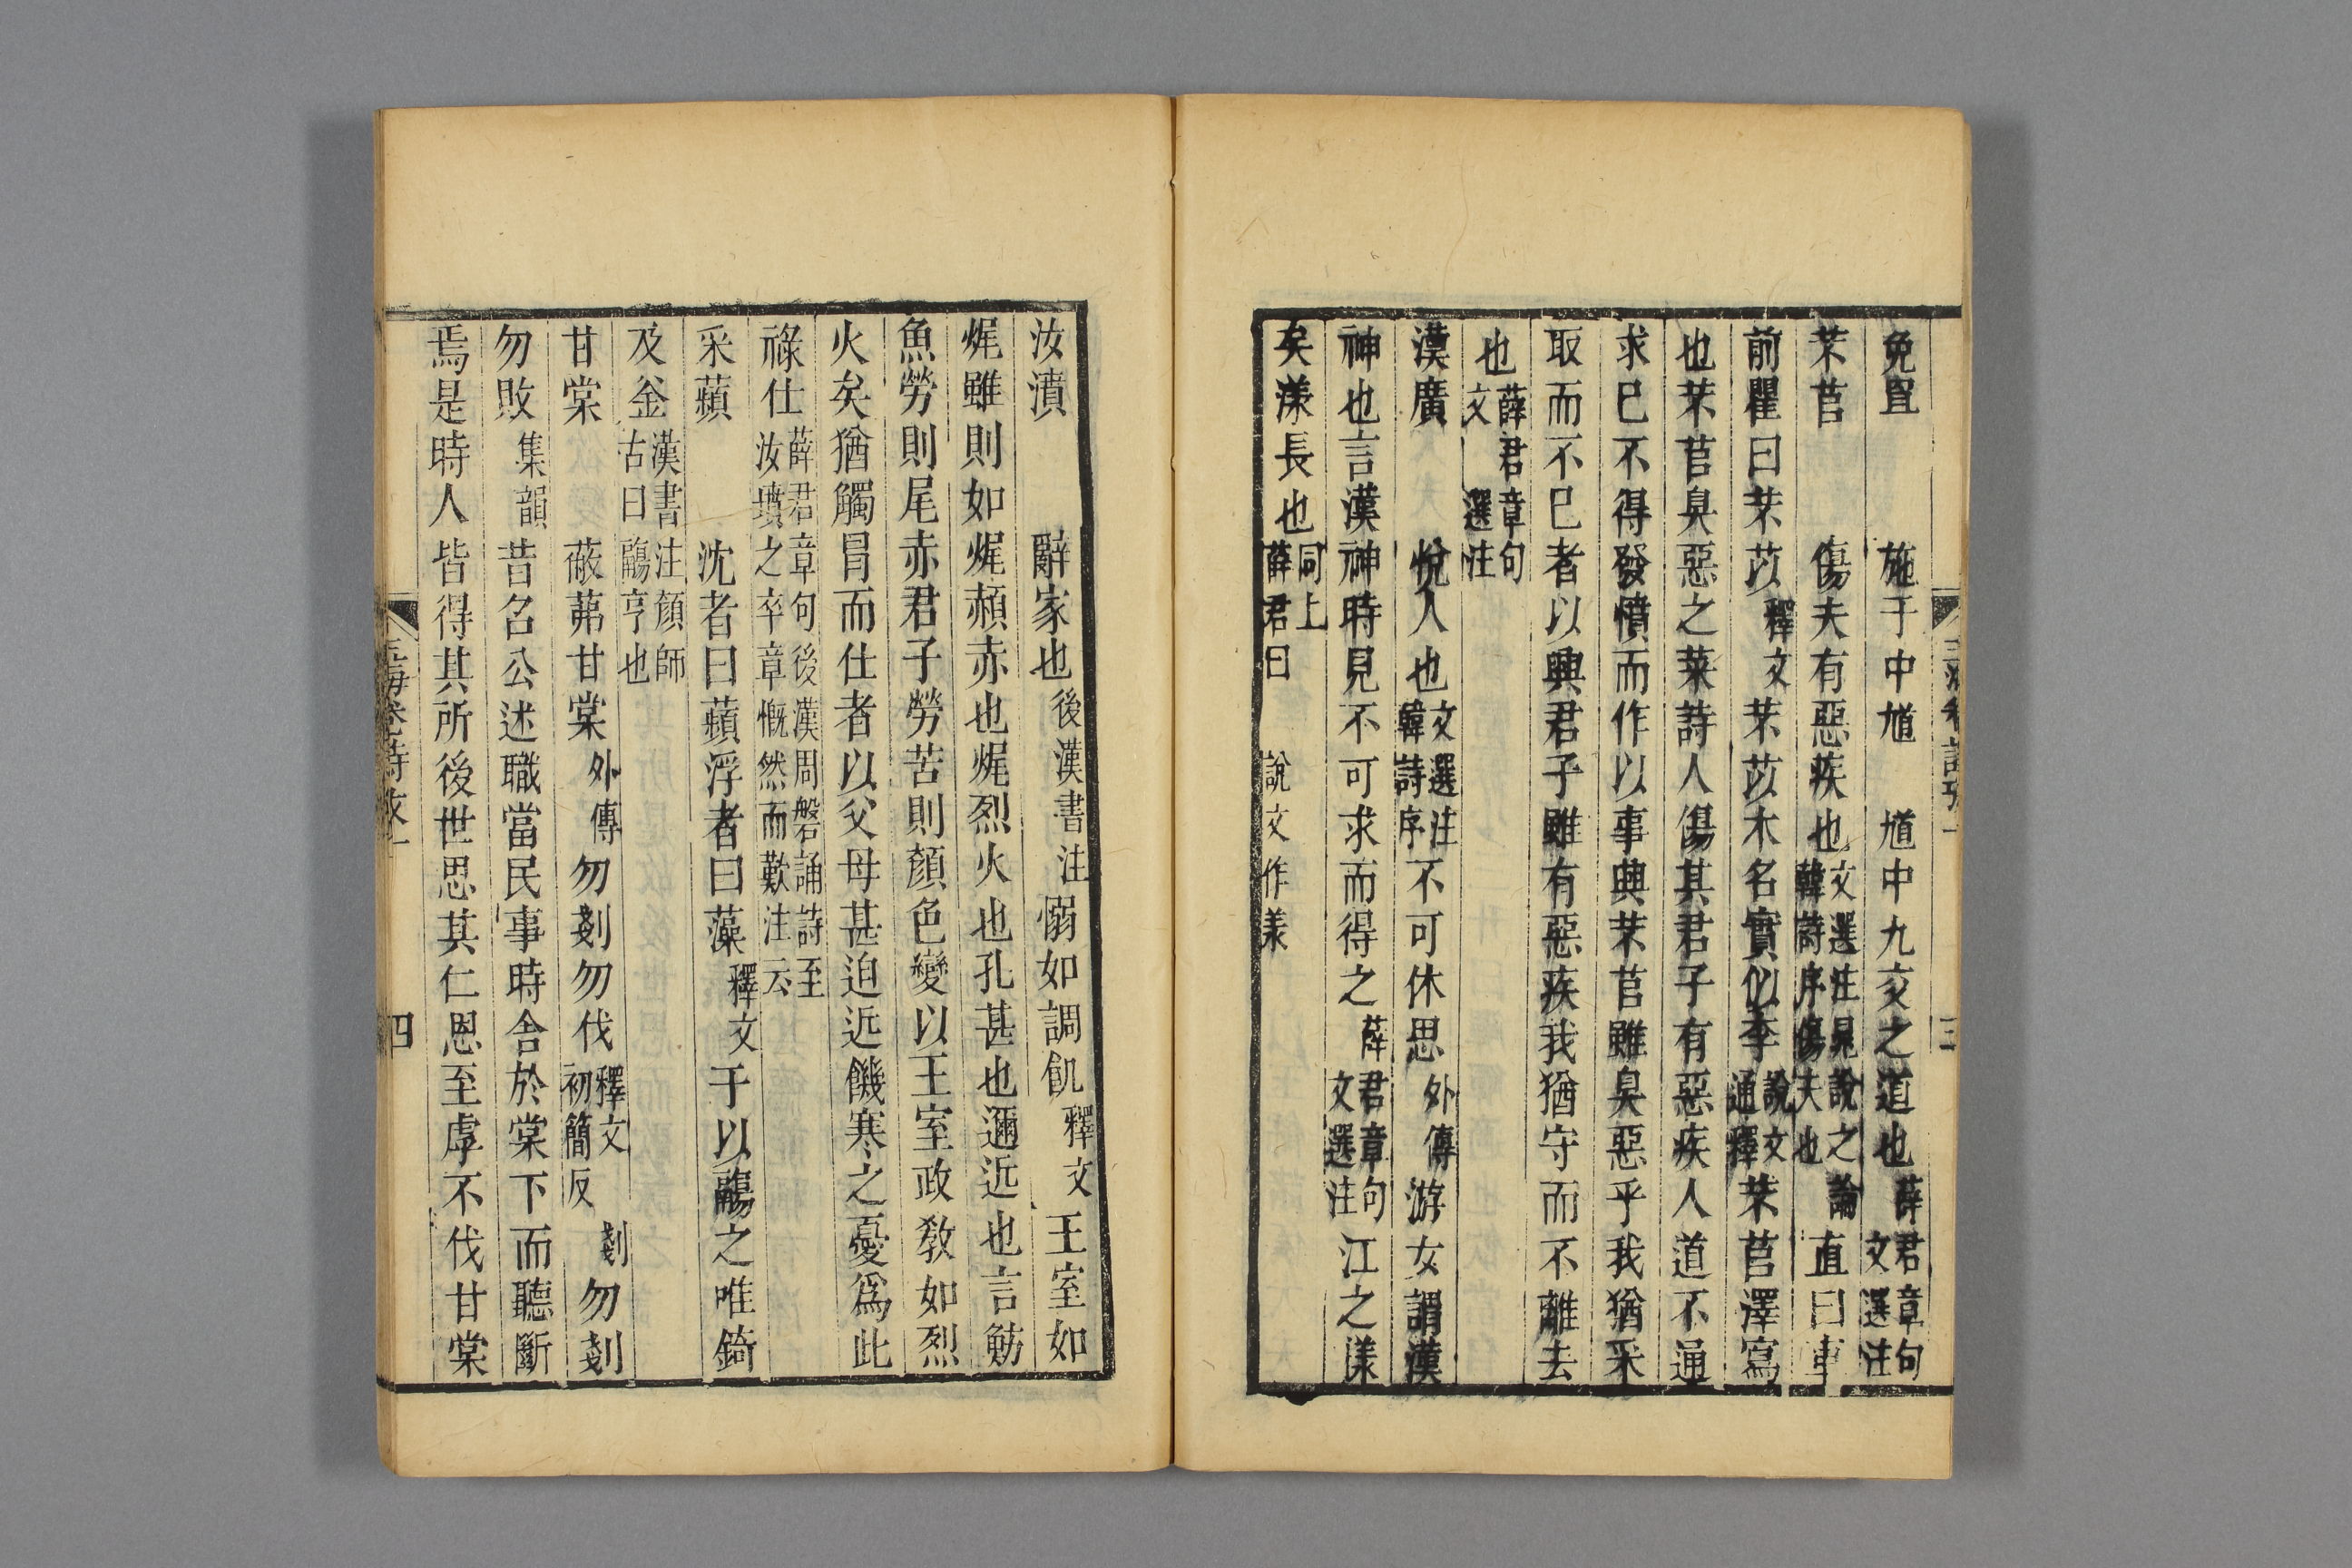 兔罝　施于中馗　馗中九交之道也薛君章句文選注
芣苢　傷夫有惡疾也文選注見說之論韓詩序傷夫也直曰車
前瞿曰芣苡釋文芣苡木名實似李說文通釋芣苢澤寫
也芣苢臭惡之菜詩人傷其君子有惡疾人道不通
求已不得發憤而作以事興芣苢雖臭惡乎我猶采
取而不已者以興君子雖有惡疾我猶守而不離去
也薛君章句文選注
漢廣　悅人也文選注韓詩序不可休思外傳游女謂漢
神也言漢神時見不可求而得之薛君章句文選注江之漾
矣漾長也同上薛君曰　說文作羕
汝濆　辭家也後漢書注惄如調飢釋文王室如
烓雖則如烓赬赤也烓烈火也孔甚也邇近也言魴
魚勞則尾赤君子勞苦則顏色變以王室政教如烈
火矣猶觸冒而仕者以父母甚迫近饑寒之憂爲此
祿仕薛君章句後漢周磐誦詩至汝墳之卒章慨然而歎注云
采蘋　沈者曰蘋浮者曰藻釋文于以鬺之唯錡
及釜漢書注顏師古曰鬺亨也
甘棠　蔽茀甘棠外傳勿剗勿伐釋文初簡反剗勿剗
勿敗集韻昔召公述職當民事時舍於棠下而聽斷
焉是時人皆得其所後世思其仁恩至虖不伐甘棠
四